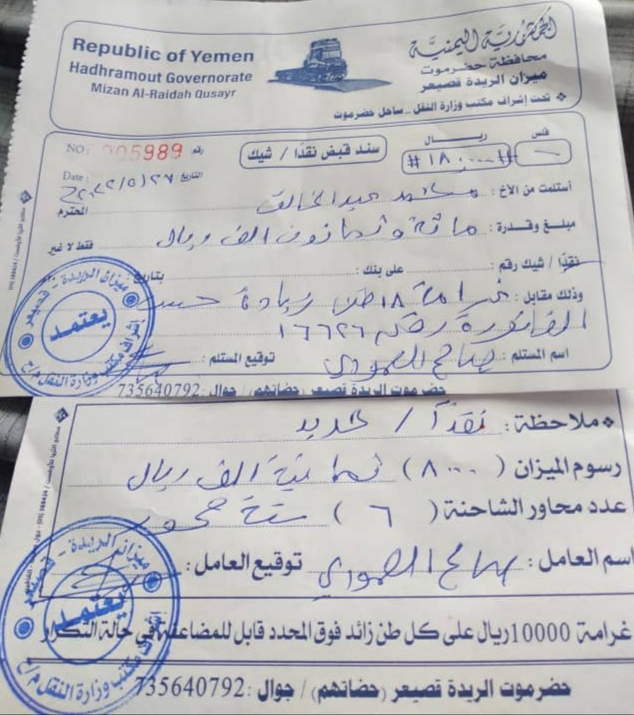 Republic of Yemen
Hadhramout Governorate
Mizan Al-Raidah Qusayr
الجمهورية اليمنية
محافظة حضرموت
ميزان الريدة قصيعر
تحت إشراف مكتب وزارة النقل - ساحل حضرموت
NO: 005989 رقم
سند قبض نقدا / شيك
ريال فلس
#١٨٠٠٠٠# -
Date: التاريخ
أستلمت من الأخ: محمد عبدالخالق المحترم
مبلغ وقدرة: مائة وثمانون الف ريال فقط لا غير
نقدا / شيك رقم: على بنك: بتاريخ
وذلك مقابل: غرامة ١٨ طن زيادة حسب
الفاتورة رقم ١٦٦٢٦
اسم المستلم: صالح العمودي توقيع المستلم:
حضرموت الريدة قصيعر (حضاتهم) / جوال: 735640792
ميزان الريدة - قصيعر
يعتمد
إشراف مكتب وزارة النقل م/ح
ملاحظة: نقداً / حديد
رسوم الميزان (٨٠٠٠) ثمانية الف ريال
عدد محاور الشاحنة (٦) ستة محور
اسم العامل: صالح العمودي توقيع العامل:
غرامة 10000ريال على كل طن زائد فوق المحدد قابل للمضاعفة في حالة التكرار
حضرموت الريدة قصيعر (حضاتهم) / جوال: 735640792
ميزان الريدة - قصيعر
يعتمد
إشراف مكتب وزارة النقل م/ح